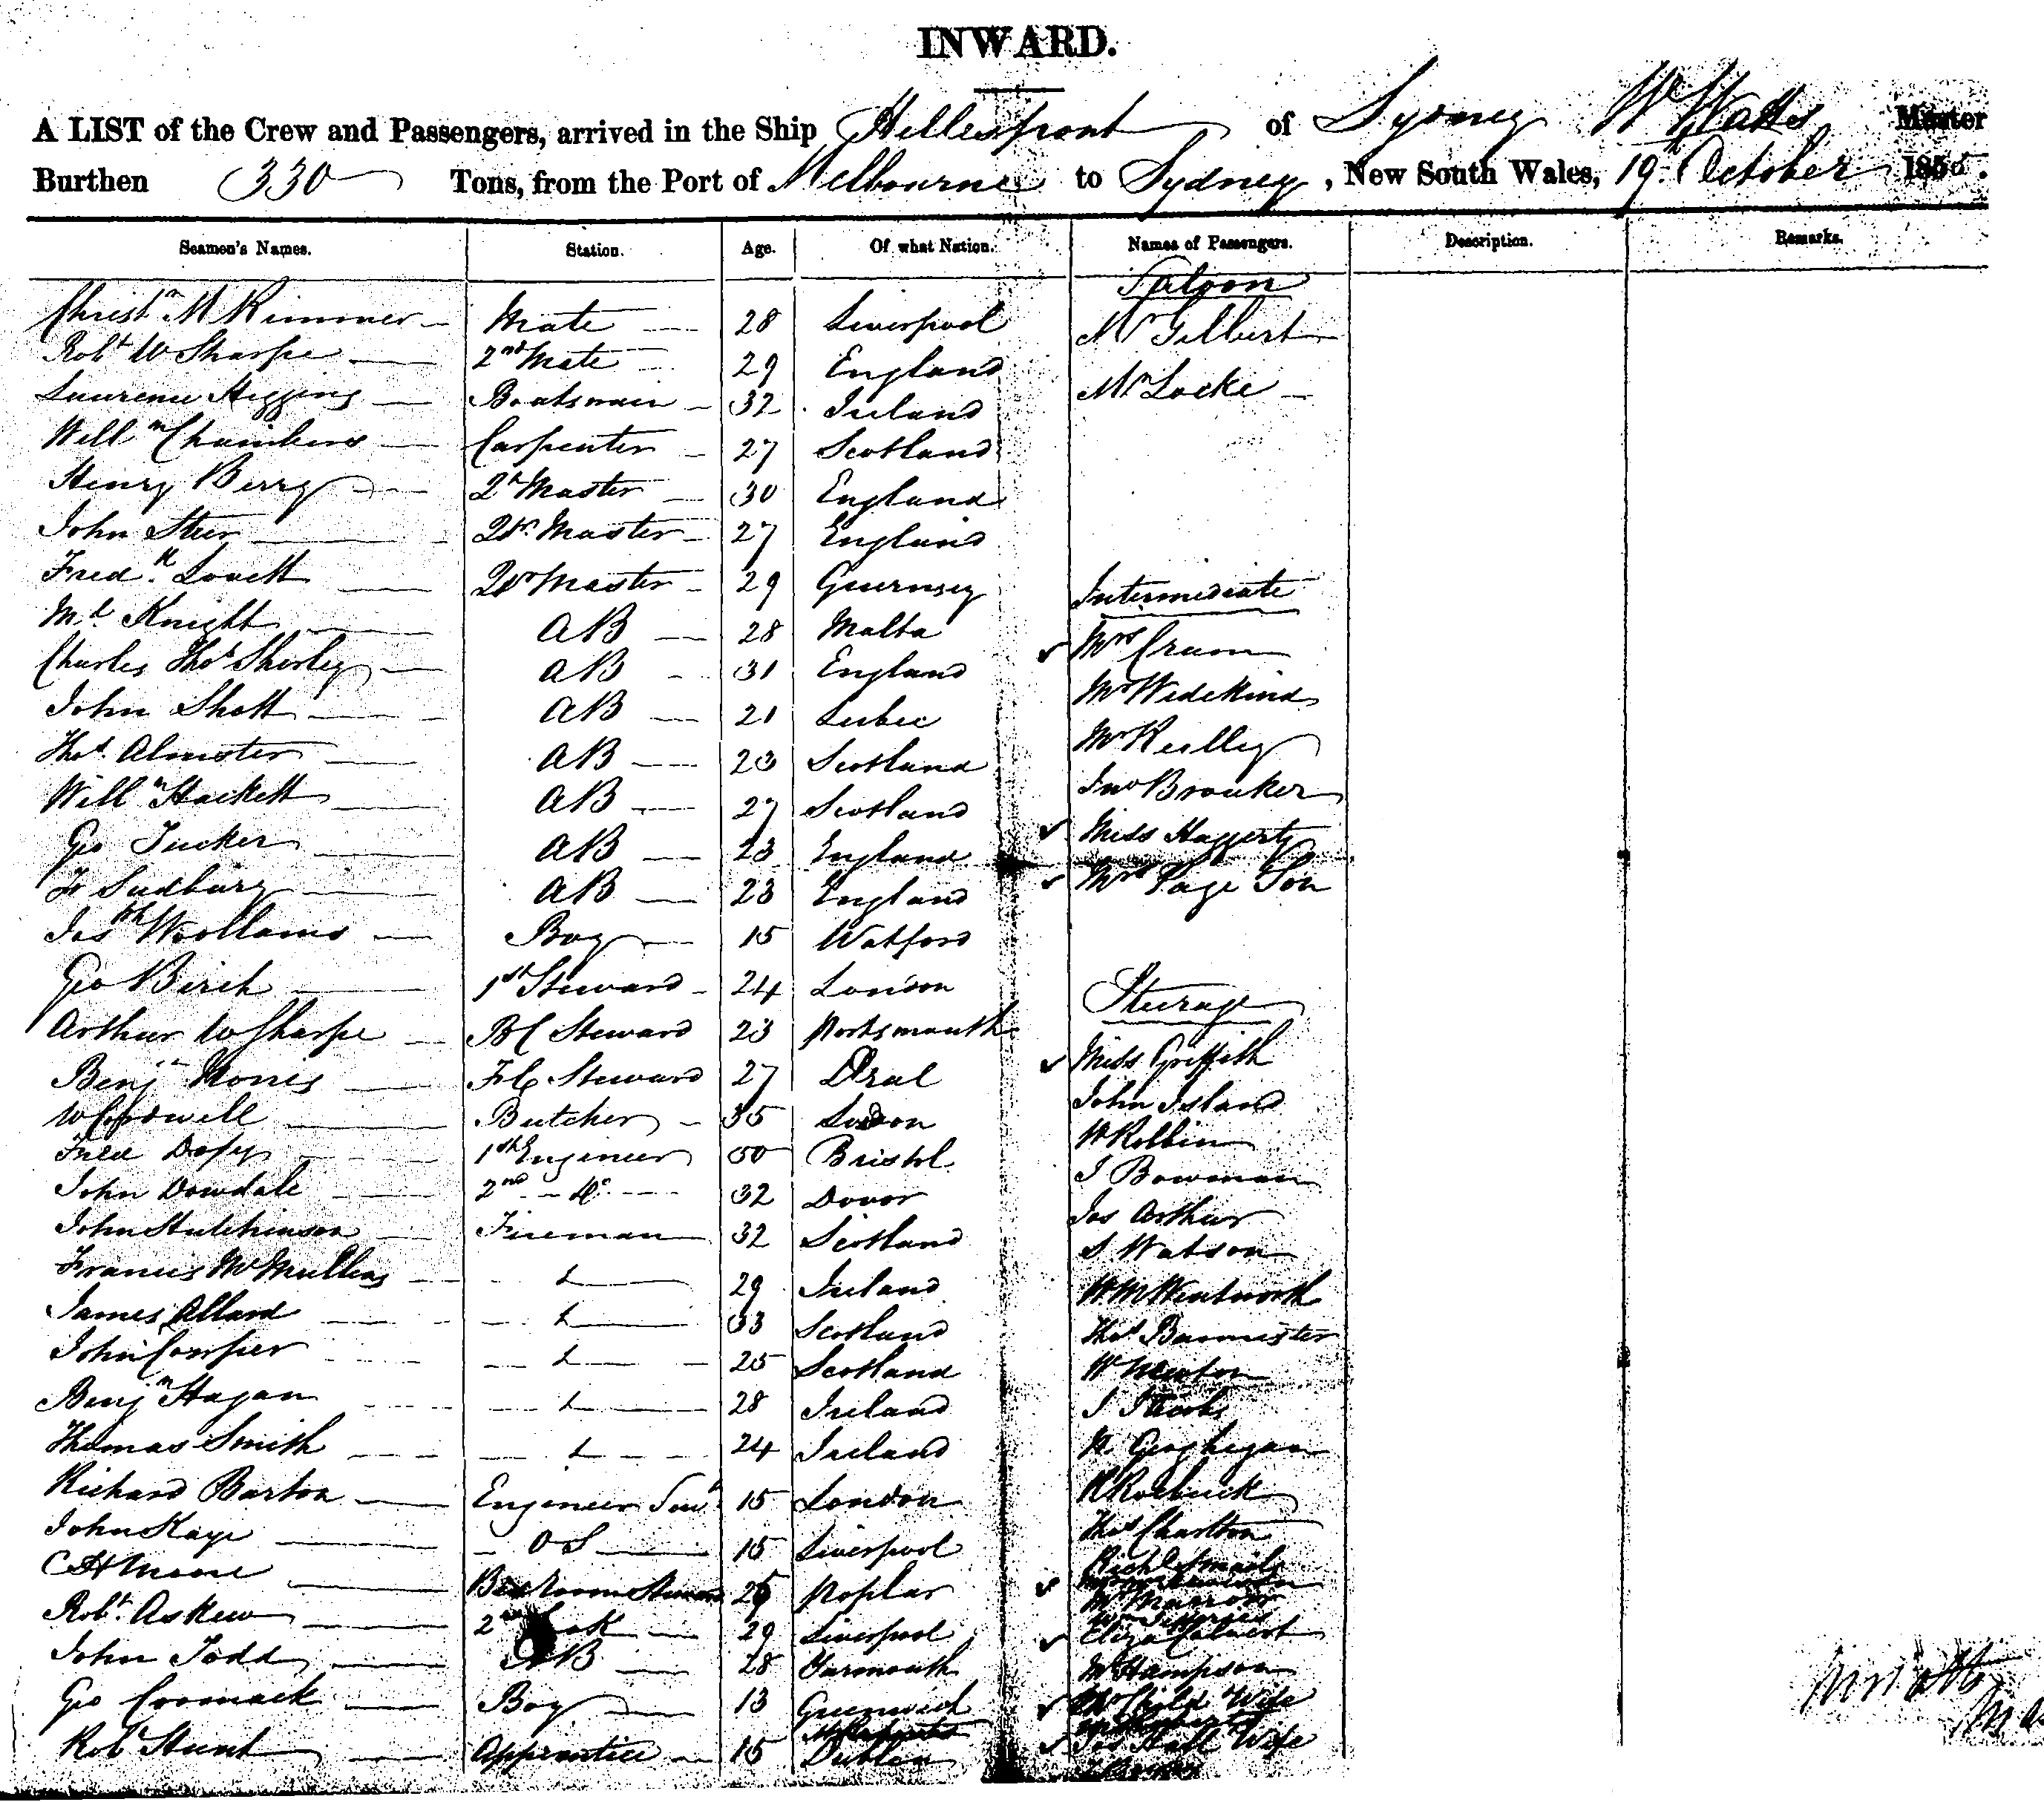 INWARD.
A LIST of the Crew and Passengers, arrived in the Ship Hellespont of Sydney W Watts Master
Burthen 330 Tons, from the Port of Melbourne to Sydney, New South Wales, 19 October 185
Seamen's Names. Station. Age. Of what Nation. Names of Passengers. Description. Remarks.
Saloon
Christn M Rimmer Mate 28 Liverpool Mr Gilbert
Robt W Sharpe 2nd Mate 29 England
Laurence Higgins Boatswain 32 Ireland Mr Locke
Willm Chambers Carpenter 27 Scotland
Henry Berry Qr Master 30 England
John Steer Qr. Master 27 England
Fredk. Lovett Qr Master 29 Guernsey Intermediate
Ml Knight AB 28 Malta Mrs Cram
Charles Thos Shirley AB 31 England Mr Wedekind
John Shott AB 21 Lubec Mr Reilley
Thos. Almster AB 23 Scotland Jno Brouker
Willm Hackett AB 27 Scotland Miss Haggerty
Geo Tucker AB 23 England Mrs Page Son
Sudbury AB 23 England
Josph Woollams Boy 15 Watford
Geo Birch 1st Steward 24 London Steerage
Arthur W Sharpe BC Steward 23 Portsmouth Miss Griffith
Benjn Steward 27 Deal John Island
Butcher 35 London W Robbin
Fred 1st Engineer 50 Bristol J Bowman
John Dowdale 2nd Do 32 Dovor Jas Arthur
John Hutchinson Fireman 32 Scotland S Watson
Francis McMullins 29 Ireland W. M Wentworth
James Allard 33 Scotland Thos Bannister
John Cowper 25 Scotland W Newton
Benjn Hagan 28 Ireland J
Thomas Smith 24 Ireland Geoghegan
Richard Barton Engineer Servt 15 London R Roebuck
John Kaye OS 15 Liverpool Thos Charlton
C H Moore Bed Room Steward Poplar Richd Smails
Mr Marrow
Robt. Askew 2nd Cook 29 Liverpool Eliza Calvert
John Todd AB 28 Yarmouth Mr Hampson
Geo Cormack Boy 13 Greenwich Mr Child Wife
Robt Hunt Apprentice 15 Dublin Jas Hall Wife